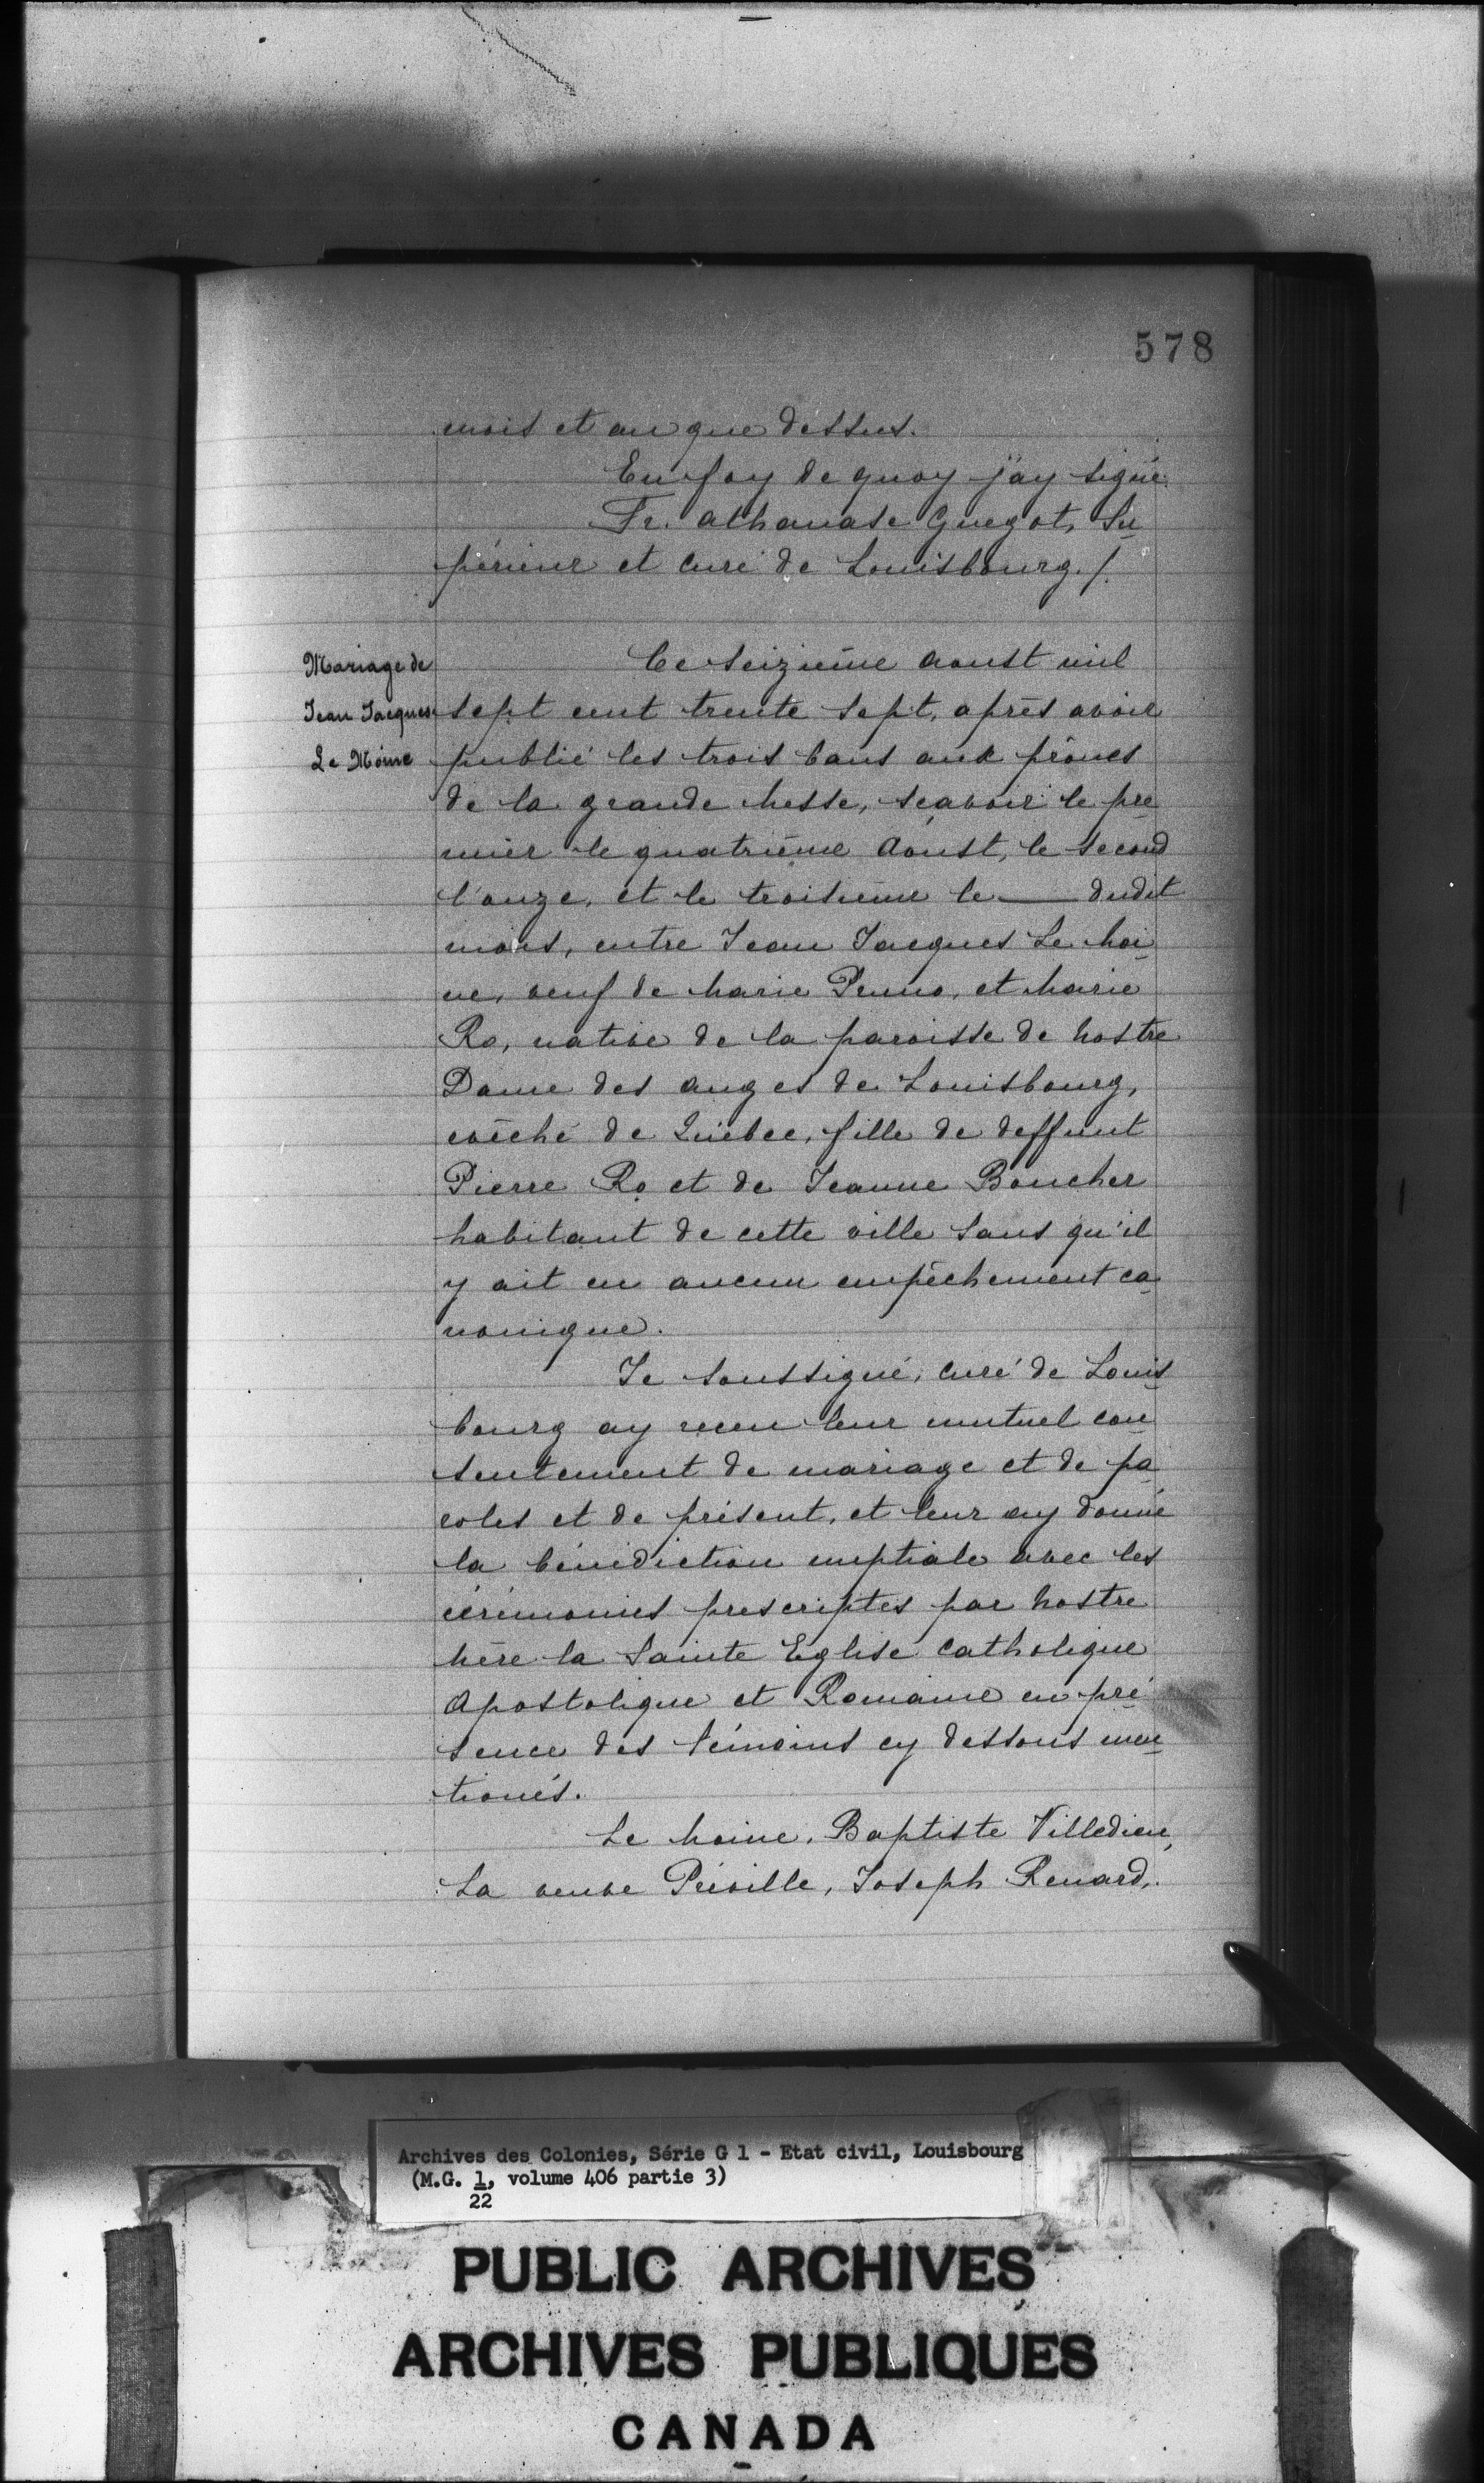 578
mois et an que dessus.
En foy de quoy j'ay signé
Fr. athanase Guegot, Su
périeur et Curé de Louisbourg. /.
Mariage de
Jean Jacques
Le Moine
Ce seizième aoust mil
sept cent trente sept, après avoir
publié les trois bans aux prônes
de la grande Messe, sçavoir le pre
mier le quatrième Aoust, le second
l'onze, et le troisième le — dudit
mois, entre Jean Jacques Le Moi
ne, veuf de Marie et Marie
Ro, native de la paroisse de Nostre
Dame des anges de Louisbourg,
evêché de Québec, fille de deffunt
Pierre Ro et de Jeanne Boucher
habitant de cette ville sans qu'il
y ait eu aucun empêchement ca
nonique.
Je soussigné, curé de Louis
bourg ay receu leur mutuel con
sentement de mariage et de pa
roles et de présent, et leur ay donné
la bénédiction nuptiale avec les
cérémonies prescriptes par Nostre
Mère la Sainte Eglise Catholique
Apostolique et Romaine en pré
sence des témoins cy dessous men
tionés.
Le Moine, Baptiste Villedieu,
La veuve Joseph Renard,
Archives des Colonies, Série G 1 - Etat civil, Louisbourg
(M.G. 1, volume 406 partie 3)
22
PUBLIC ARCHIVES
ARCHIVES PUBLIQUES
CANADA